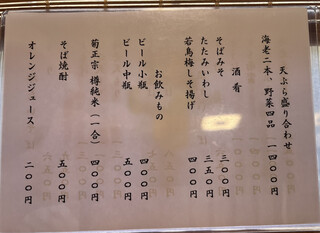 天ぷら盛り合わせ
海老二本、野菜四品 一四〇〇円
酒肴
そばみそ 三〇〇円
たたみいわし 三五〇円
若鳥梅しそ揚げ 四〇〇円
お飲みもの
ビール小瓶 四〇〇円
ビール中瓶 五〇〇円
菊正宗 樽純米(一合) 四〇〇円
そば焼酎 五〇〇円
オレンジジュース 二〇〇円